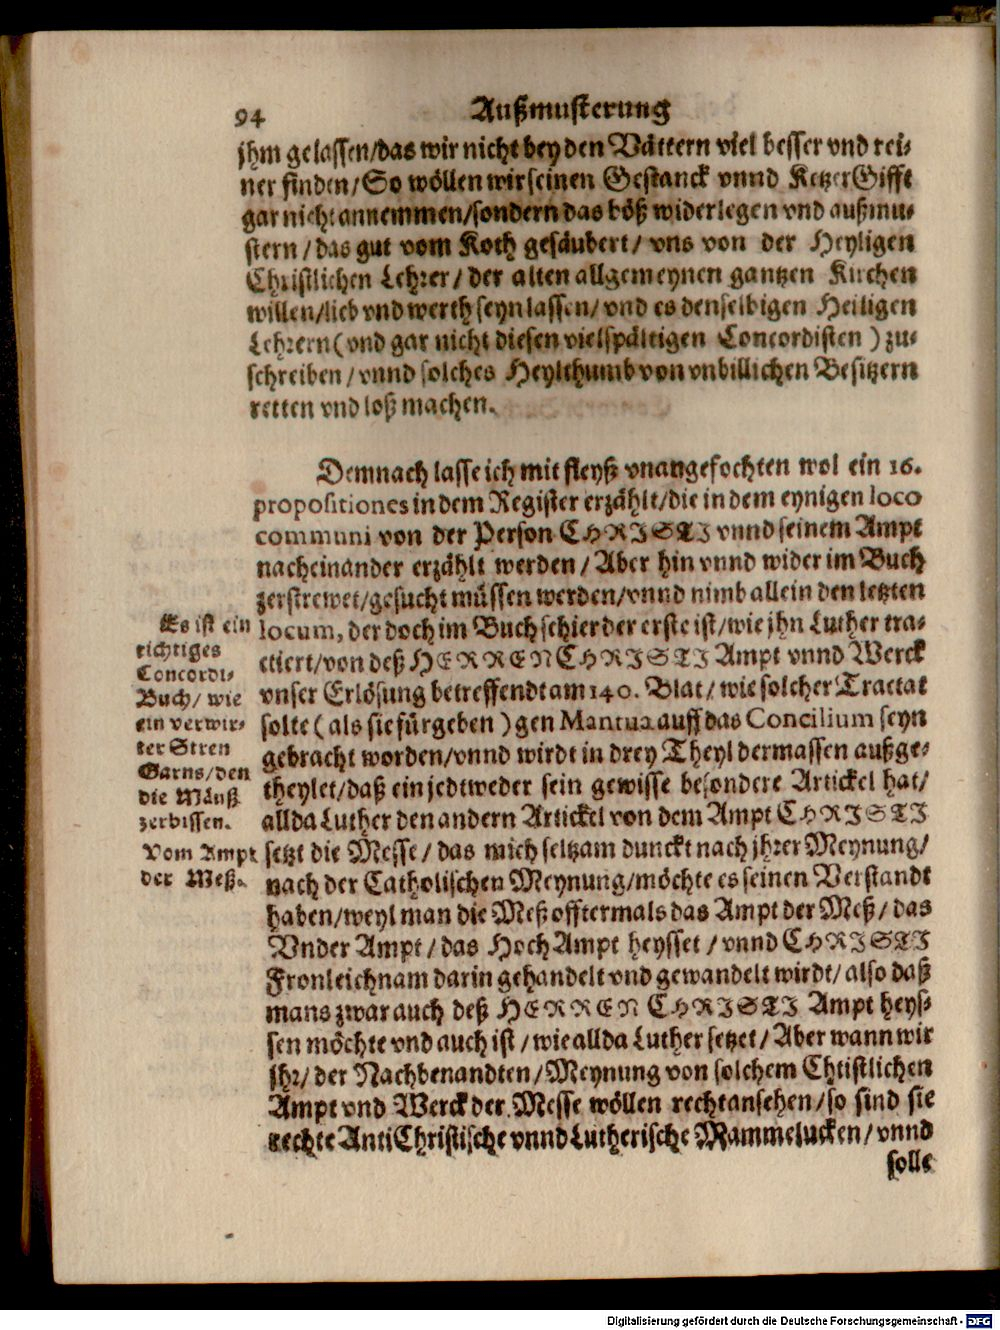 94 Außmusterung
jhm gelassen/das wir nicht bey den Vättern viel besser vnd rei-
ner finden/So wöllen wir seinen Gestanck vnnd KetzerGifft
gar nicht annemmen/sondern das böß widerlegen vnd außmu-
stern/das gut vom Koth gesäubert/vns von der Heyligen
Christlichen Lehrer/der alten allgemeynen gantzen Kirchen
willen/lieb vnd werth seyn lassen/vnd es denselbigen Heiligen
Lehrern(vnd gar nicht diesen vielspältigen Concordisten)zu-
schreiben/vnnd solches Heylthumb von vnbillichen Besitzern
retten vnd loß machen.
Demnach lasse ich mit fleyß vnangefochten wol ein 16.
propositiones in dem Register erzählt/die in dem eynigen loco
communi von der Person CHRISTI vnnd seinem Ampt
nacheinander erzählt werden/Aber hin vnnd wider im Buch
zerstrewet/gesucht müssen werden/vnnd nimb allein den letzten
locum, der doch im Buch schier der erste ist/wie jhn Luther tra-
ctiert/von deß HERREN CHRISTI Ampt vnnd Werck
vnser Erlösung betreffendt am 140. Blat/wie solcher Tractat
solte(als sie fürgeben)gen Mantua auff das Concilium seyn
gebracht worden/vnnd wirdt in drey Theyl dermassen außge-
theylet/daß ein jedtweder sein gewisse besondere Artickel hat/
allda Luther den andern Artickel von dem Ampt CHRISTI
setzt die Messe/das mich seltzam dunckt nach jhrer Meynung/
nach der Catholischen Meynung/möchte es seinen Verstandt
haben/weyl man die Meß offtermals das Ampt der Meß/das
Vnder Ampt/das Hoch Ampt heysset/vnnd CHRISTI
Fronleichnam darin gehandelt vnd gewandelt wirdt/also daß
mans zwar auch deß HERREN CHRISTI Ampt heys-
sen möchte vnd auch ist/wie allda Luther setzet/Aber wann wir
jhr/der Nachbenandten/Meynung von solchem Chtistlichen
Ampt vnd Werck der Messe wöllen recht ansehen/so sind sie
rechte AntiChristische vnnd Lutherische Mammelucken/vnnd
solle
Es ist ein
richtiges
Concordi-
Buch/wie
ein verwir-
ter Stren
Garns/den
die Mäuß
zerbissen.
Vom Ampt
der Meß.
Digitalisierung gefördert durch die Deutsche Forschungsgemeinschaft - DFG